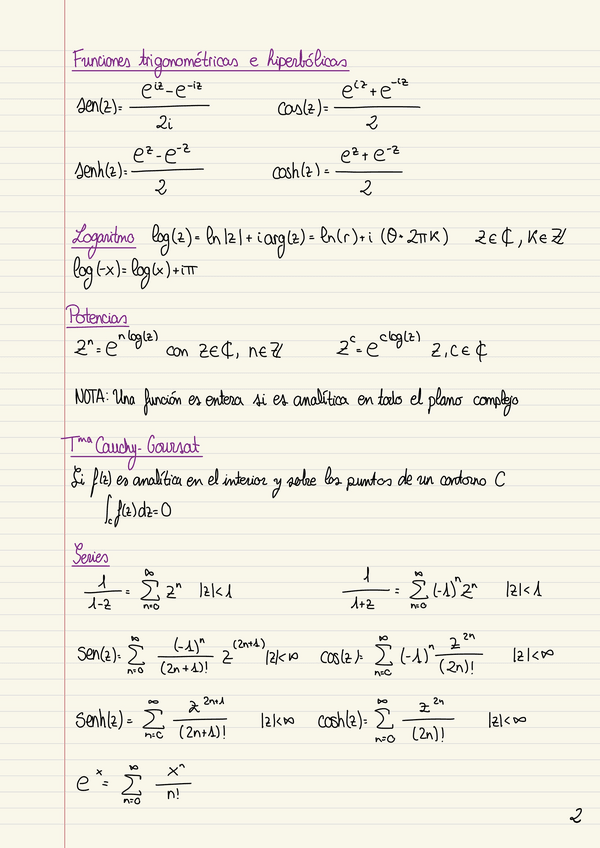 Funciones trigonométricas e hiperbólicas
sen(z)= (e^{iz} - e^{-iz}) / 2i    cos(z)= (e^{iz} + e^{-iz}) / 2
senh(z)= (e^z - e^{-z}) / 2    cosh(z)= (e^z + e^{-z}) / 2
Logaritmo log(z) = ln|z| + i arg(z) = ln(r) + i (θ + 2πK)    z∈ℂ, K∈ℤ
log(-x) = log(x) + iπ
Potencias
z^n = e^{n log(z)} con z∈ℂ, n∈ℤ    z^c = e^{c log(z)} z,c∈ℂ
NOTA: Una función es entera si es analítica en todo el plano complejo
T^{ma} Cauchy-Goursat
Si f(z) es analítica en el interior y sobre los puntos de un contorno C
∫_c f(z)dz=0
Series
1/(1-z) = ∑_{n=0}^{∞} z^n |z|<1    1/(1+z) = ∑_{n=0}^{∞} (-1)^n z^n |z|<1
sen(z)= ∑_{n=0}^{∞} (-1)^n/(2n+1)! z^{(2n+1)} |z|<∞    cos(z)= ∑_{n=0}^{∞} (-1)^n z^{2n}/(2n)! |z|<∞
senh(z)= ∑_{n=0}^{∞} z^{2n+1}/(2n+1)! |z|<∞    cosh(z)= ∑_{n=0}^{∞} z^{2n}/(2n)! |z|<∞
e^x = ∑_{n=0}^{∞} x^n/n!
2